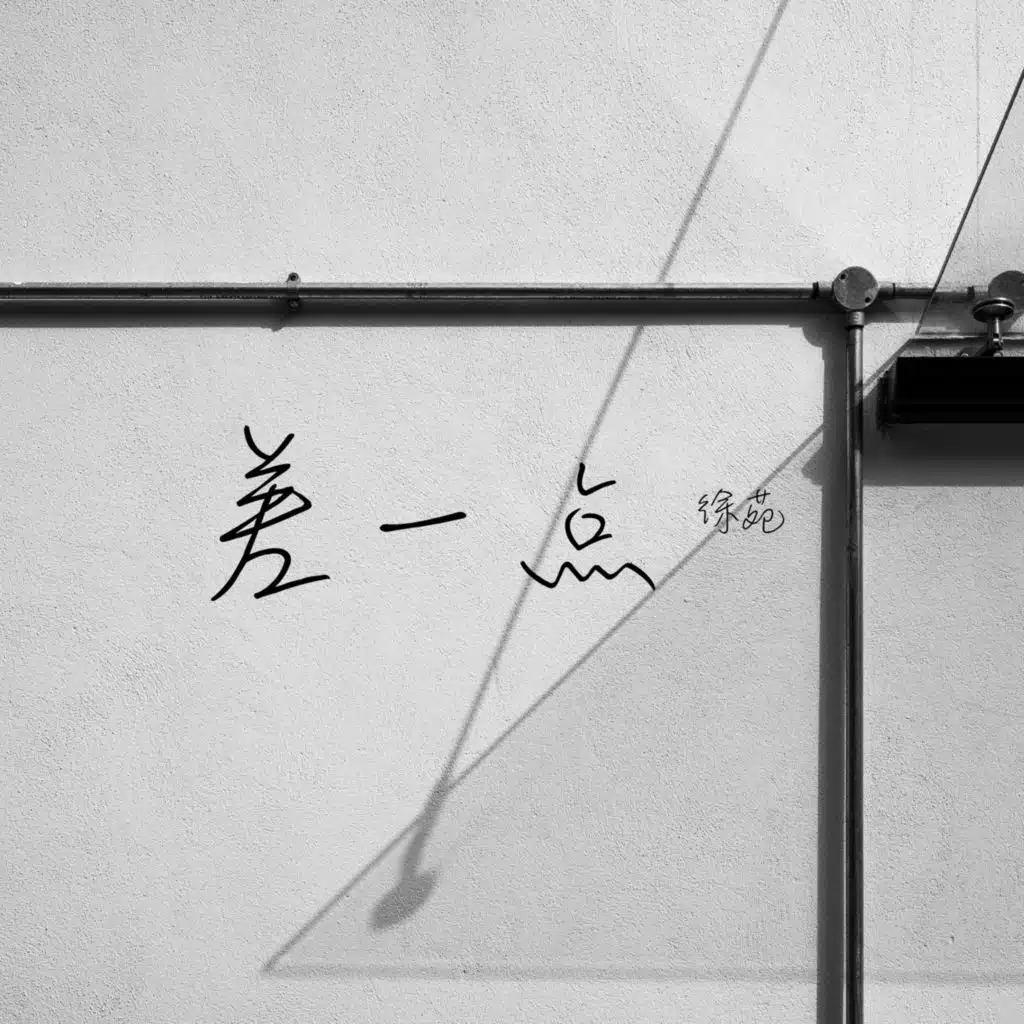 差一点 徐苑